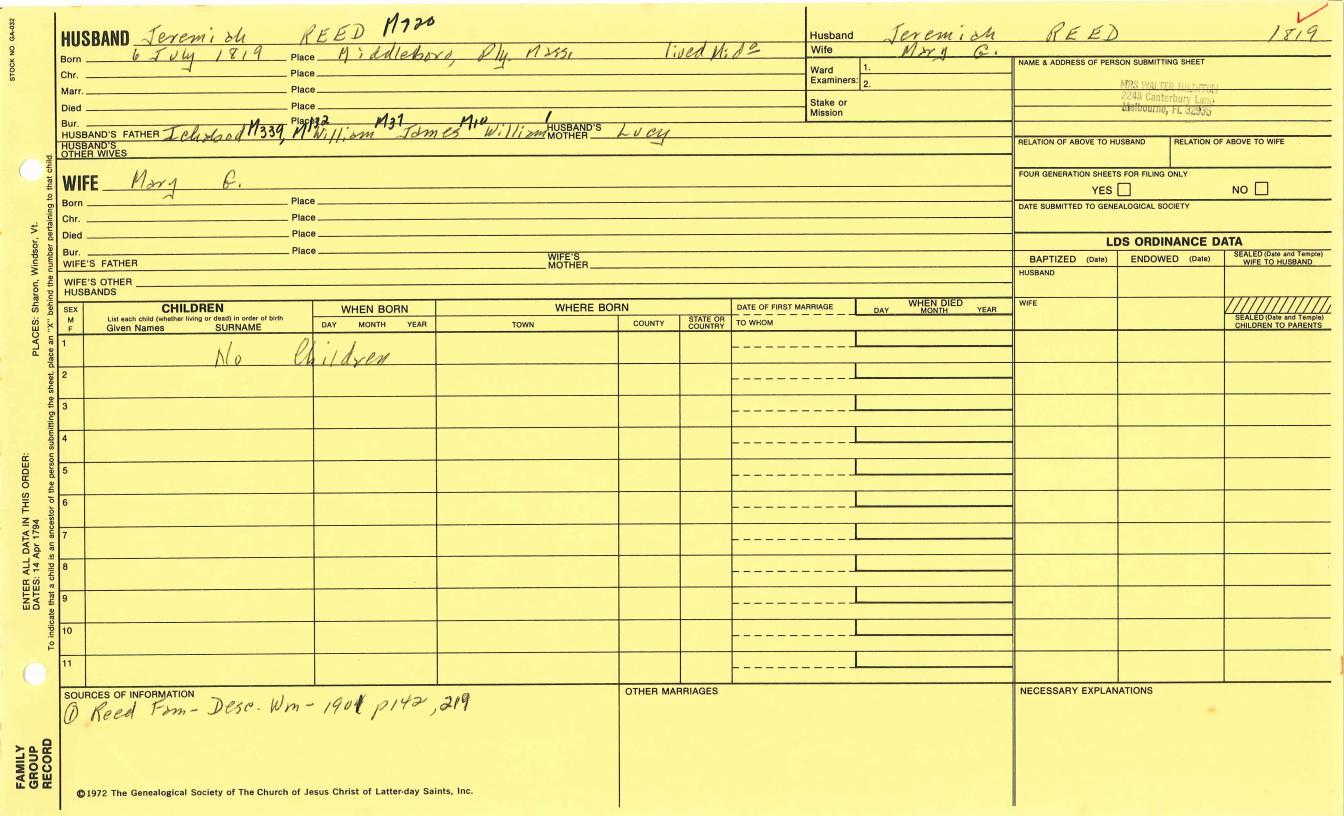 STOCK NO. GA-032
HUSBAND Jeremiah REED M720
Born 6 July 1819 Place Middleboro, Ply. Mass. lived
Chr. Place
Marr. Place
Died Place
Bur. Place
HUSBAND'S FATHER Ichabod M339, William M37 James M10 William 1 HUSBAND'S MOTHER Lucy
HUSBAND'S OTHER WIVES
WIFE Mary G.
Born Place
Chr. Place
Died Place
Bur. Place
WIFE'S FATHER WIFE'S MOTHER
WIFE'S OTHER HUSBANDS
Husband Jeremiah REED 1819
Wife Mary G.
Ward Examiners: 1.
2.
Stake or Mission
NAME & ADDRESS OF PERSON SUBMITTING SHEET
MRS WALTER
2248 Canterbury Lane
Melbourne, FL 32935
RELATION OF ABOVE TO HUSBAND RELATION OF ABOVE TO WIFE
FOUR GENERATION SHEETS FOR FILING ONLY
YES NO
DATE SUBMITTED TO GENEALOGICAL SOCIETY
LDS ORDINANCE DATA
BAPTIZED (Date) ENDOWED (Date) SEALED (Date and Temple) WIFE TO HUSBAND
HUSBAND
WIFE
SEALED (Date and Temple) CHILDREN TO PARENTS
SEX M F
CHILDREN
List each child (whether living or dead) in order of birth
Given Names SURNAME
WHEN BORN
DAY MONTH YEAR
WHERE BORN
TOWN COUNTY STATE OR COUNTRY
DATE OF FIRST MARRIAGE
TO WHOM
WHEN DIED
DAY MONTH YEAR
1 No Children
2
3
4
5
6
7
8
9
10
11
SOURCES OF INFORMATION
① Reed Fam- Desc. Wm- 1901 p142, 219
OTHER MARRIAGES
NECESSARY EXPLANATIONS
©1972 The Genealogical Society of The Church of Jesus Christ of Latter-day Saints, Inc.
FAMILY GROUP RECORD
ENTER ALL DATA IN THIS ORDER:
DATES: 14 Apr 1794
PLACES: Sharon, Windsor, Vt.
To indicate that a child is an ancestor of the person submitting the sheet, place an "X" behind the number pertaining to that child.